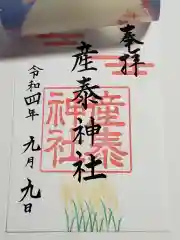 奉拝
産泰神社
産泰神社
令和四年九月九日